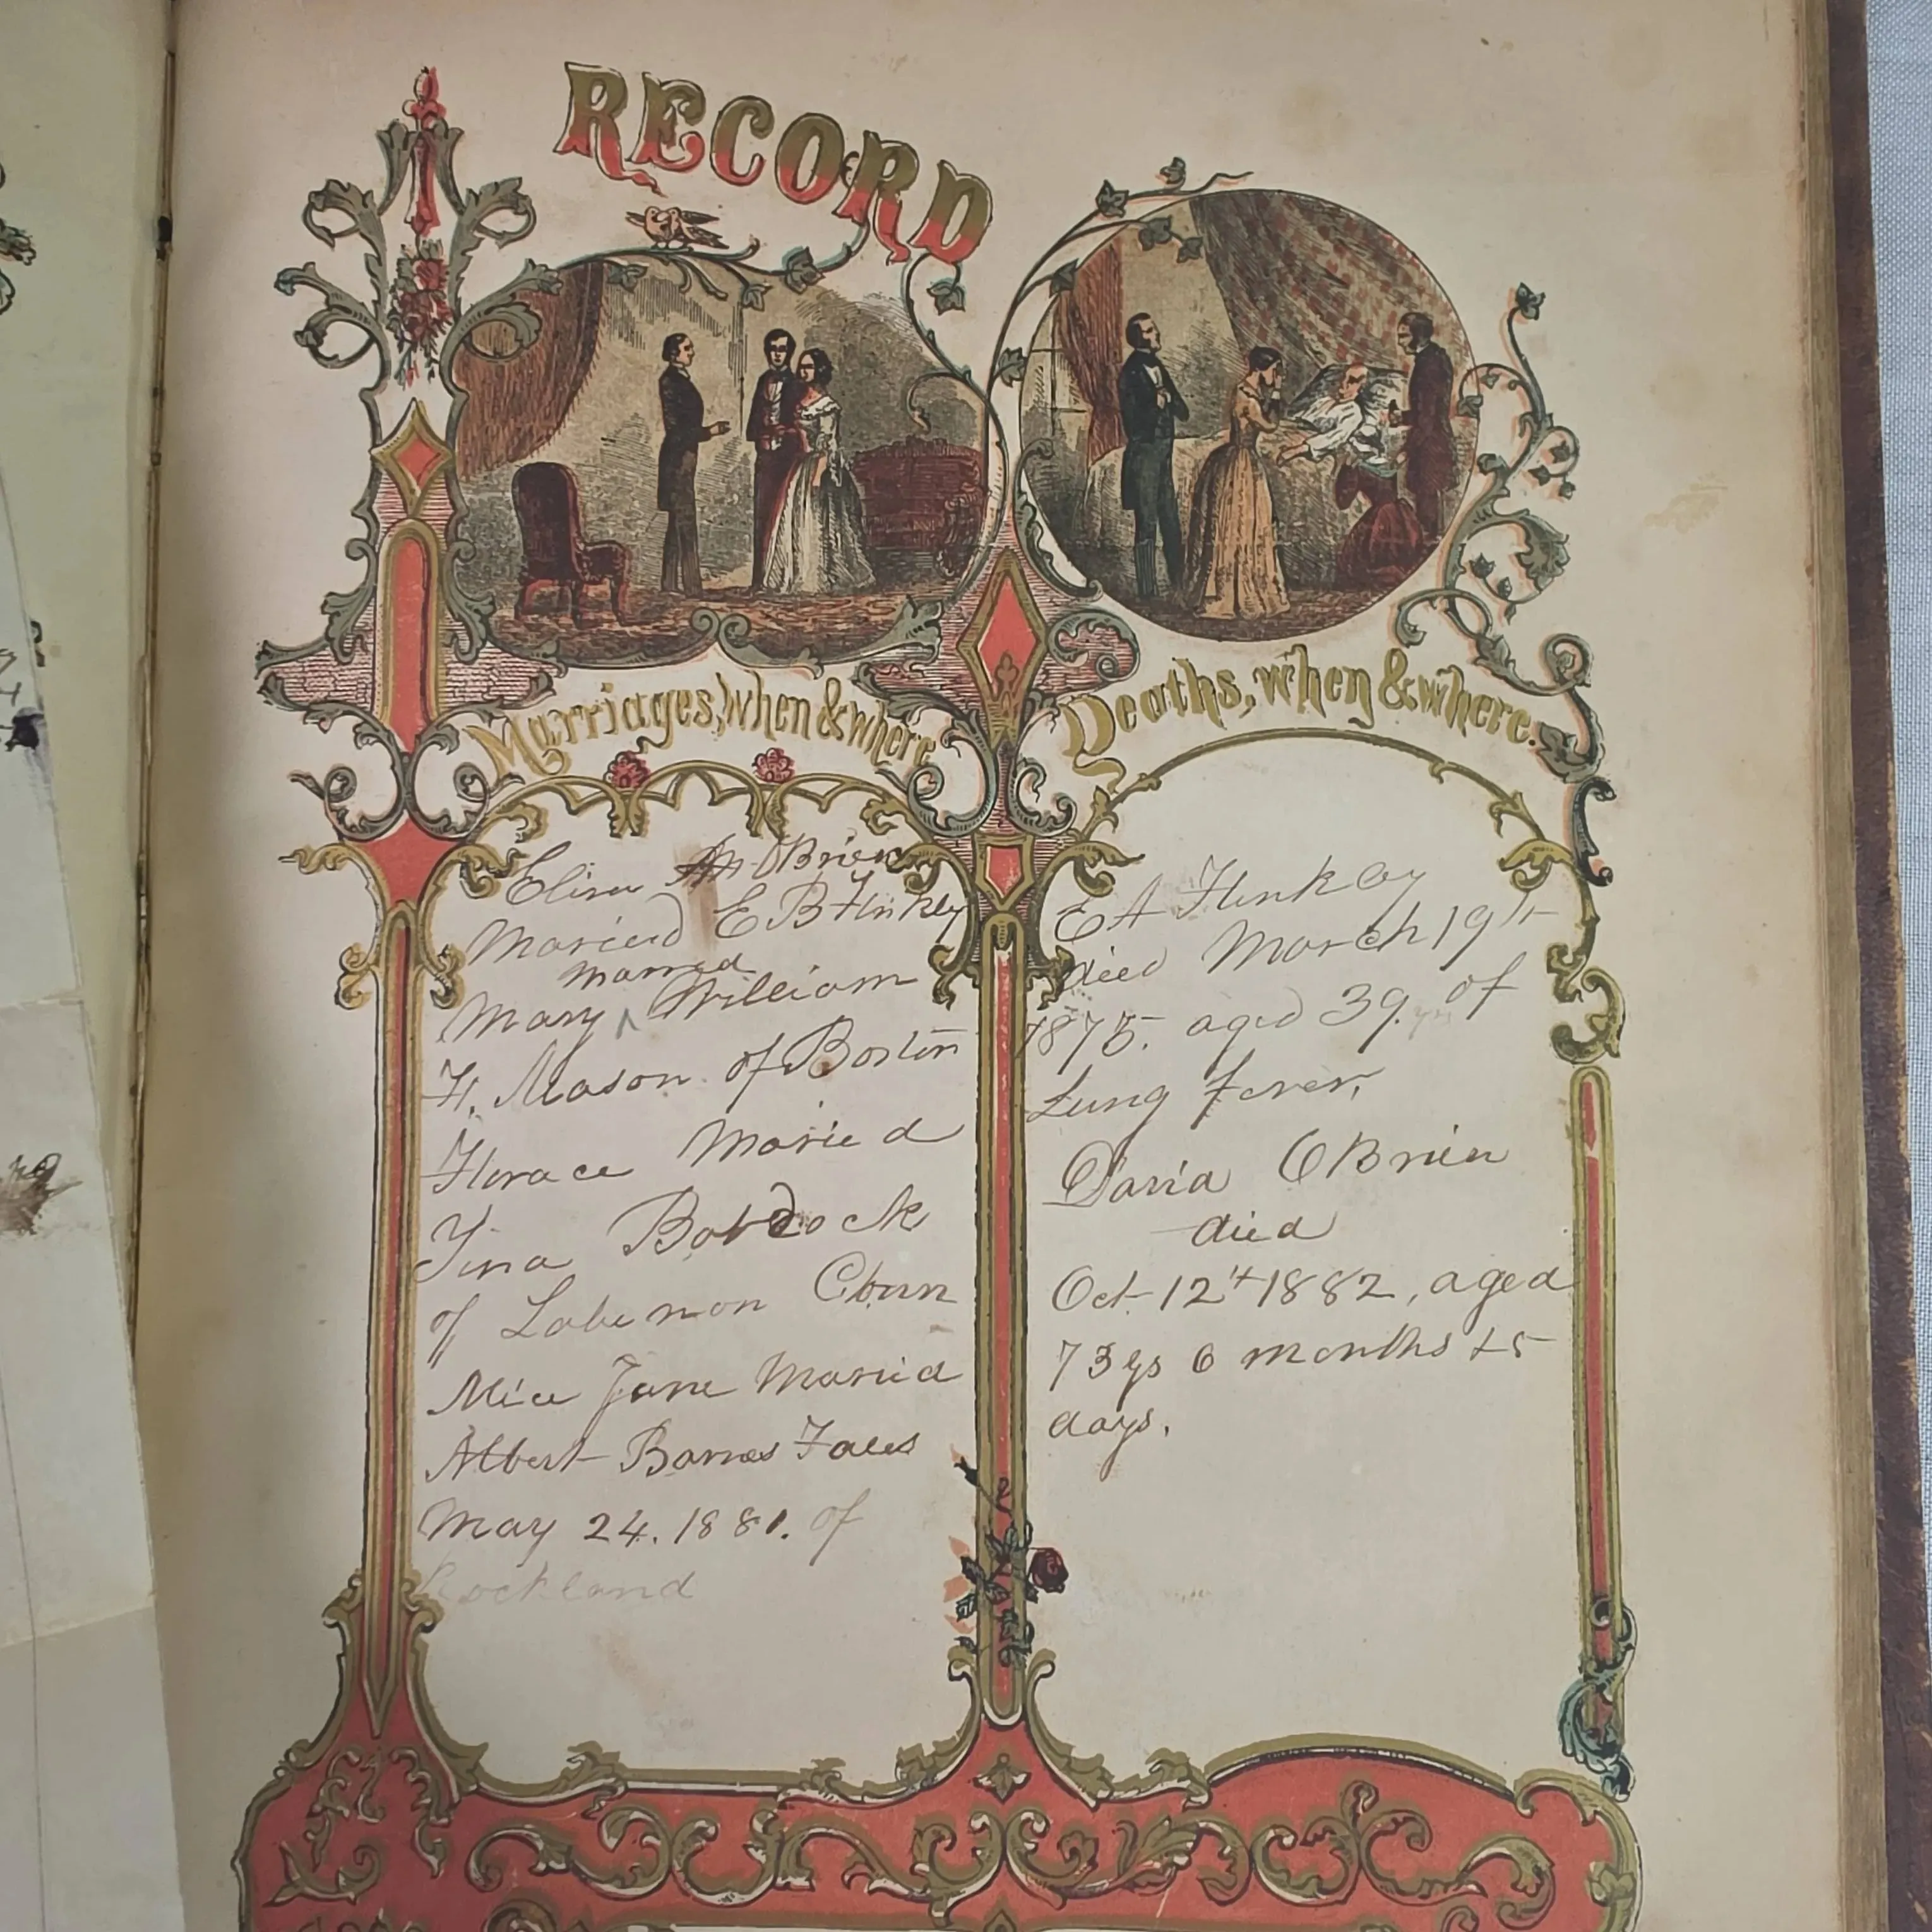 RECORD
Marriages, when & where
Eliza OBrien
Maried E B Hinkley
married
Mary ^ William
H. Mason of Boston
Horace Maried
Tina Babcock
of Lebenon Conn
Alice Jane Maried
Albert Barnes Fales
May 24. 1881. of
Rockland
Deaths, when & where.
E A Hinkley
died March 19th
1875. aged 39. yrs of
Lung Fever,
David OBrien
died
Oct 12th 1882, aged
73 ys 6 months & 5
days.